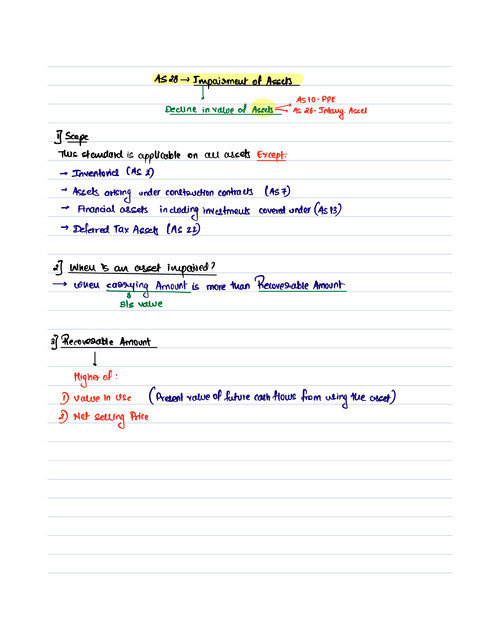 AS 28 → Impairment of Assets
Decline in value of Assets
AS 10 - PPE
AS 26 - Intang. Asset
1] Scope
This standard is applicable on all assets Except:
→ Inventories (AS 2)
→ Assets arising under construction contracts (AS 7)
→ Financial assets including investments covered under (AS 13)
→ Deferred Tax Assets (AS 22)
2] When is an asset impaired?
→ When carrying Amount is more than Recoverable Amount
B/S value
3] Recoverable Amount
Higher of:
1) Value in Use (Present value of future cash flows from using the asset)
2) Net Selling Price